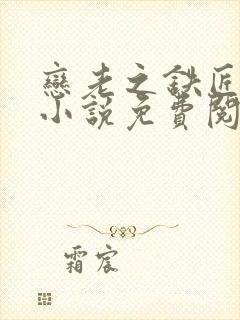 戀老之鉄匠
小說免費閱
霜宸